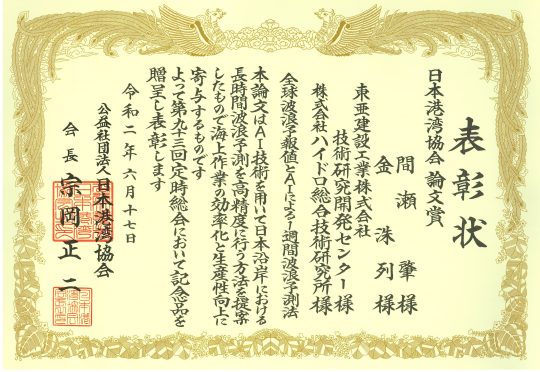 表彰状
日本港湾協会 論文賞
間瀬 肇 様
金 洙列 様
東亜建設工業株式会社
技術研究開発センター 様
株式会社ハイドロ総合技術研究所 様
全球波浪予報値とAIによる1週間波浪予測法
本論文はAI技術を用いて日本沿岸における
長時間波浪予測を高精度に行う方法を提案
したもので海上作業の効率化と生産性向上に
寄与するものです
よって第九十三回定時総会において記念品を
贈呈し表彰します
令和二年六月十七日
公益社団法人日本港湾協会
会長 宗岡正二